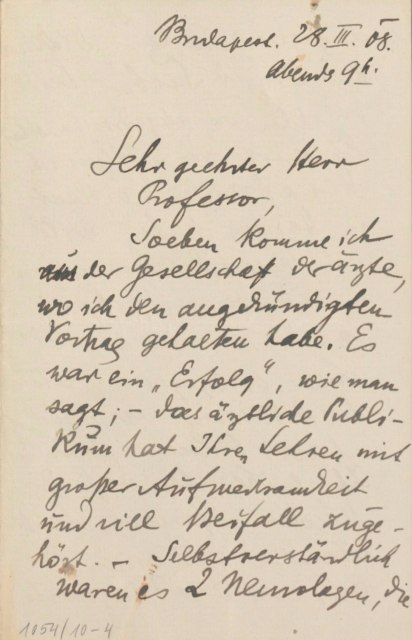 Budapest. 28. III. 08.
Abends 9h.
Sehr geehrter Herr
Professor,
Soeben komme ich
aus der Gesellschaft der Ärzte,
wo ich den angekündigten
Vortrag gehalten habe. Es
war ein „Erfolg“, wie man
sagt; – das ärztliche Publi-
kum hat Ihren Lehren mit
großer Aufmerksamkeit
und viel Beifall zuge-
hört. – Selbstverständlich
waren es 2 Neurologen, die
1054/10-4